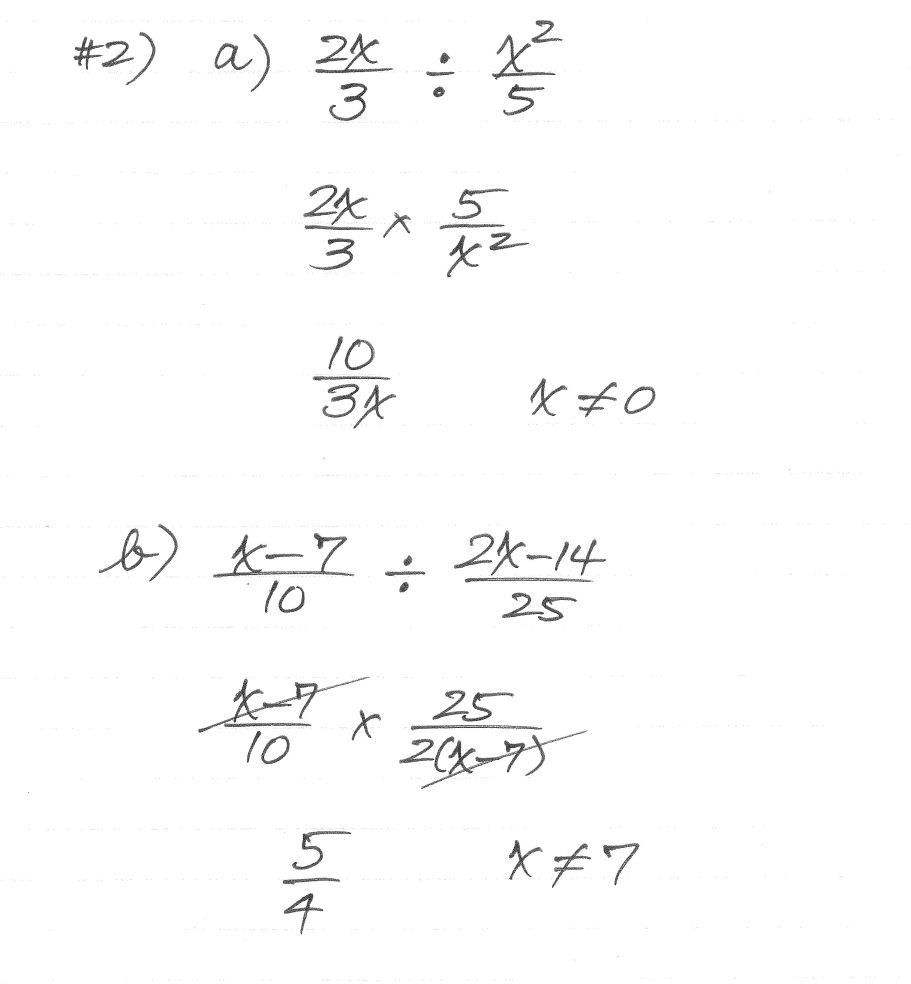 #2) a) 2x/3 ÷ x²/5
2x/3 × 5/x²
10/3x x ≠ 0
b) x-7/10 ÷ 2x-14/25
x-7/10 × 25/2(x-7)
5/4 x ≠ 7